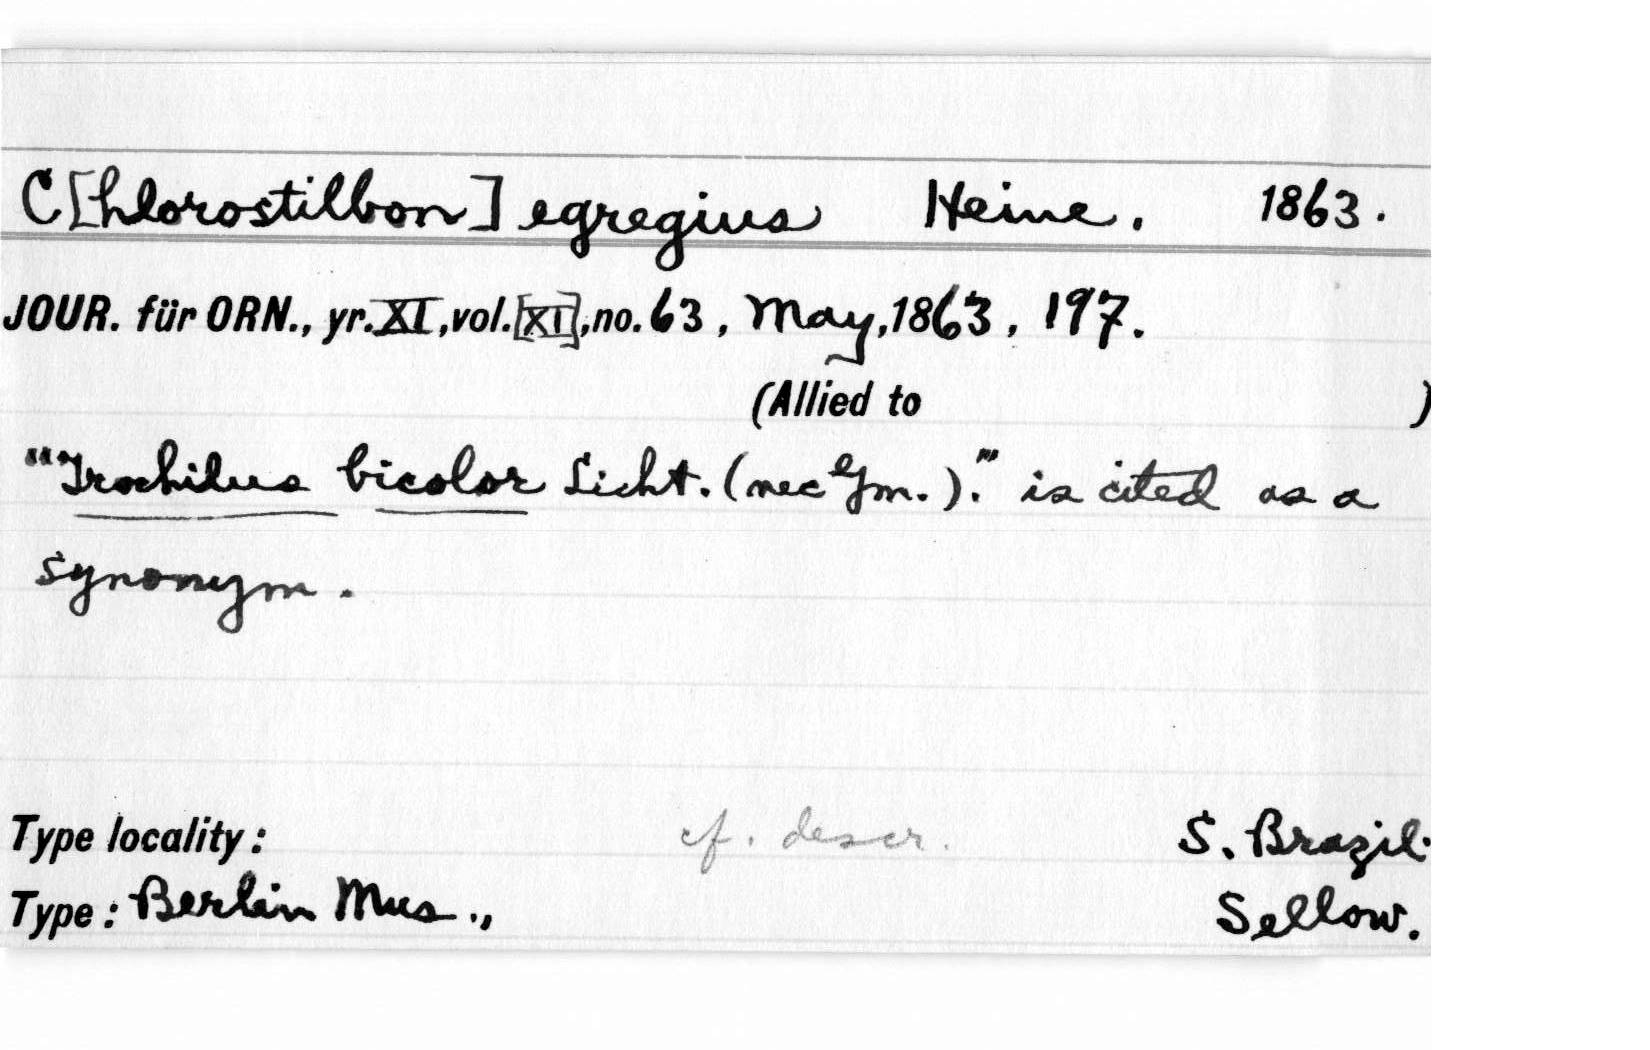 C[hlorostilbon] egregius Heine. 1863.
JOUR. für ORN., yr. XI, vol. [XI], no. 63, May, 1863, 197.
(Allied to )
"'Trochilus bicolor Licht. (nec Gm.).'" is cited as a
synonym.
Type locality: cf. descr. S. Brazil.
Type: Berlin Mus., Sellow.